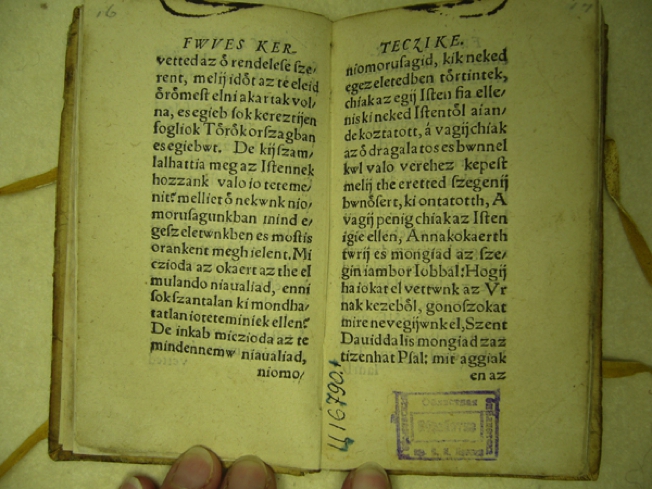 16
FWVES KER-
vetted az ő rendelese sze/
rent, melij időt az te eleid
őrőmest elni akartak vol/
na, es egieb sok kereztijen
fogliok Tőrőkorszagban
es egiebwt. De kij szam/
lalhattia meg az Istennek
hozzank valo io teteme/
nit? melliet ő nekwnk nio/
morusagunkban mind e/
gesz eletwnkben es mostis
orankent megh ielent. Mi
czioda az okaert az the el
mulando niaualiad, enni
sok szantalan ki mondha/
tatlan ioteteminiek ellen?
De inkab miczioda az te
mindennemw niaualiad,
niomo/
17
TECZIKE.
niomorusagid, kik neked
egez eletedben tőrtintek,
chiak az egij Isten fia elle/
nis ki neked Istentől aian/
dekoztatott, á vagij chiak
az ő dragalatos es bwnnel
kwl valo verehez kepest
melij the eretted szegenij
bwnősert, ki ontatotth, A
vagij penig chiak az Isten
igie ellen, Annakokaerth
twrij es mongiad az sze/
gin iambor Iobbal: Hogij
ha iokat el vettwnk az Vr
nak kezeből, gonoszokat
mire ne vegijwnk el, Szent
Dauiddalis mongiad zaz
tizenhat Psal: mit aggiak
en az
16790.